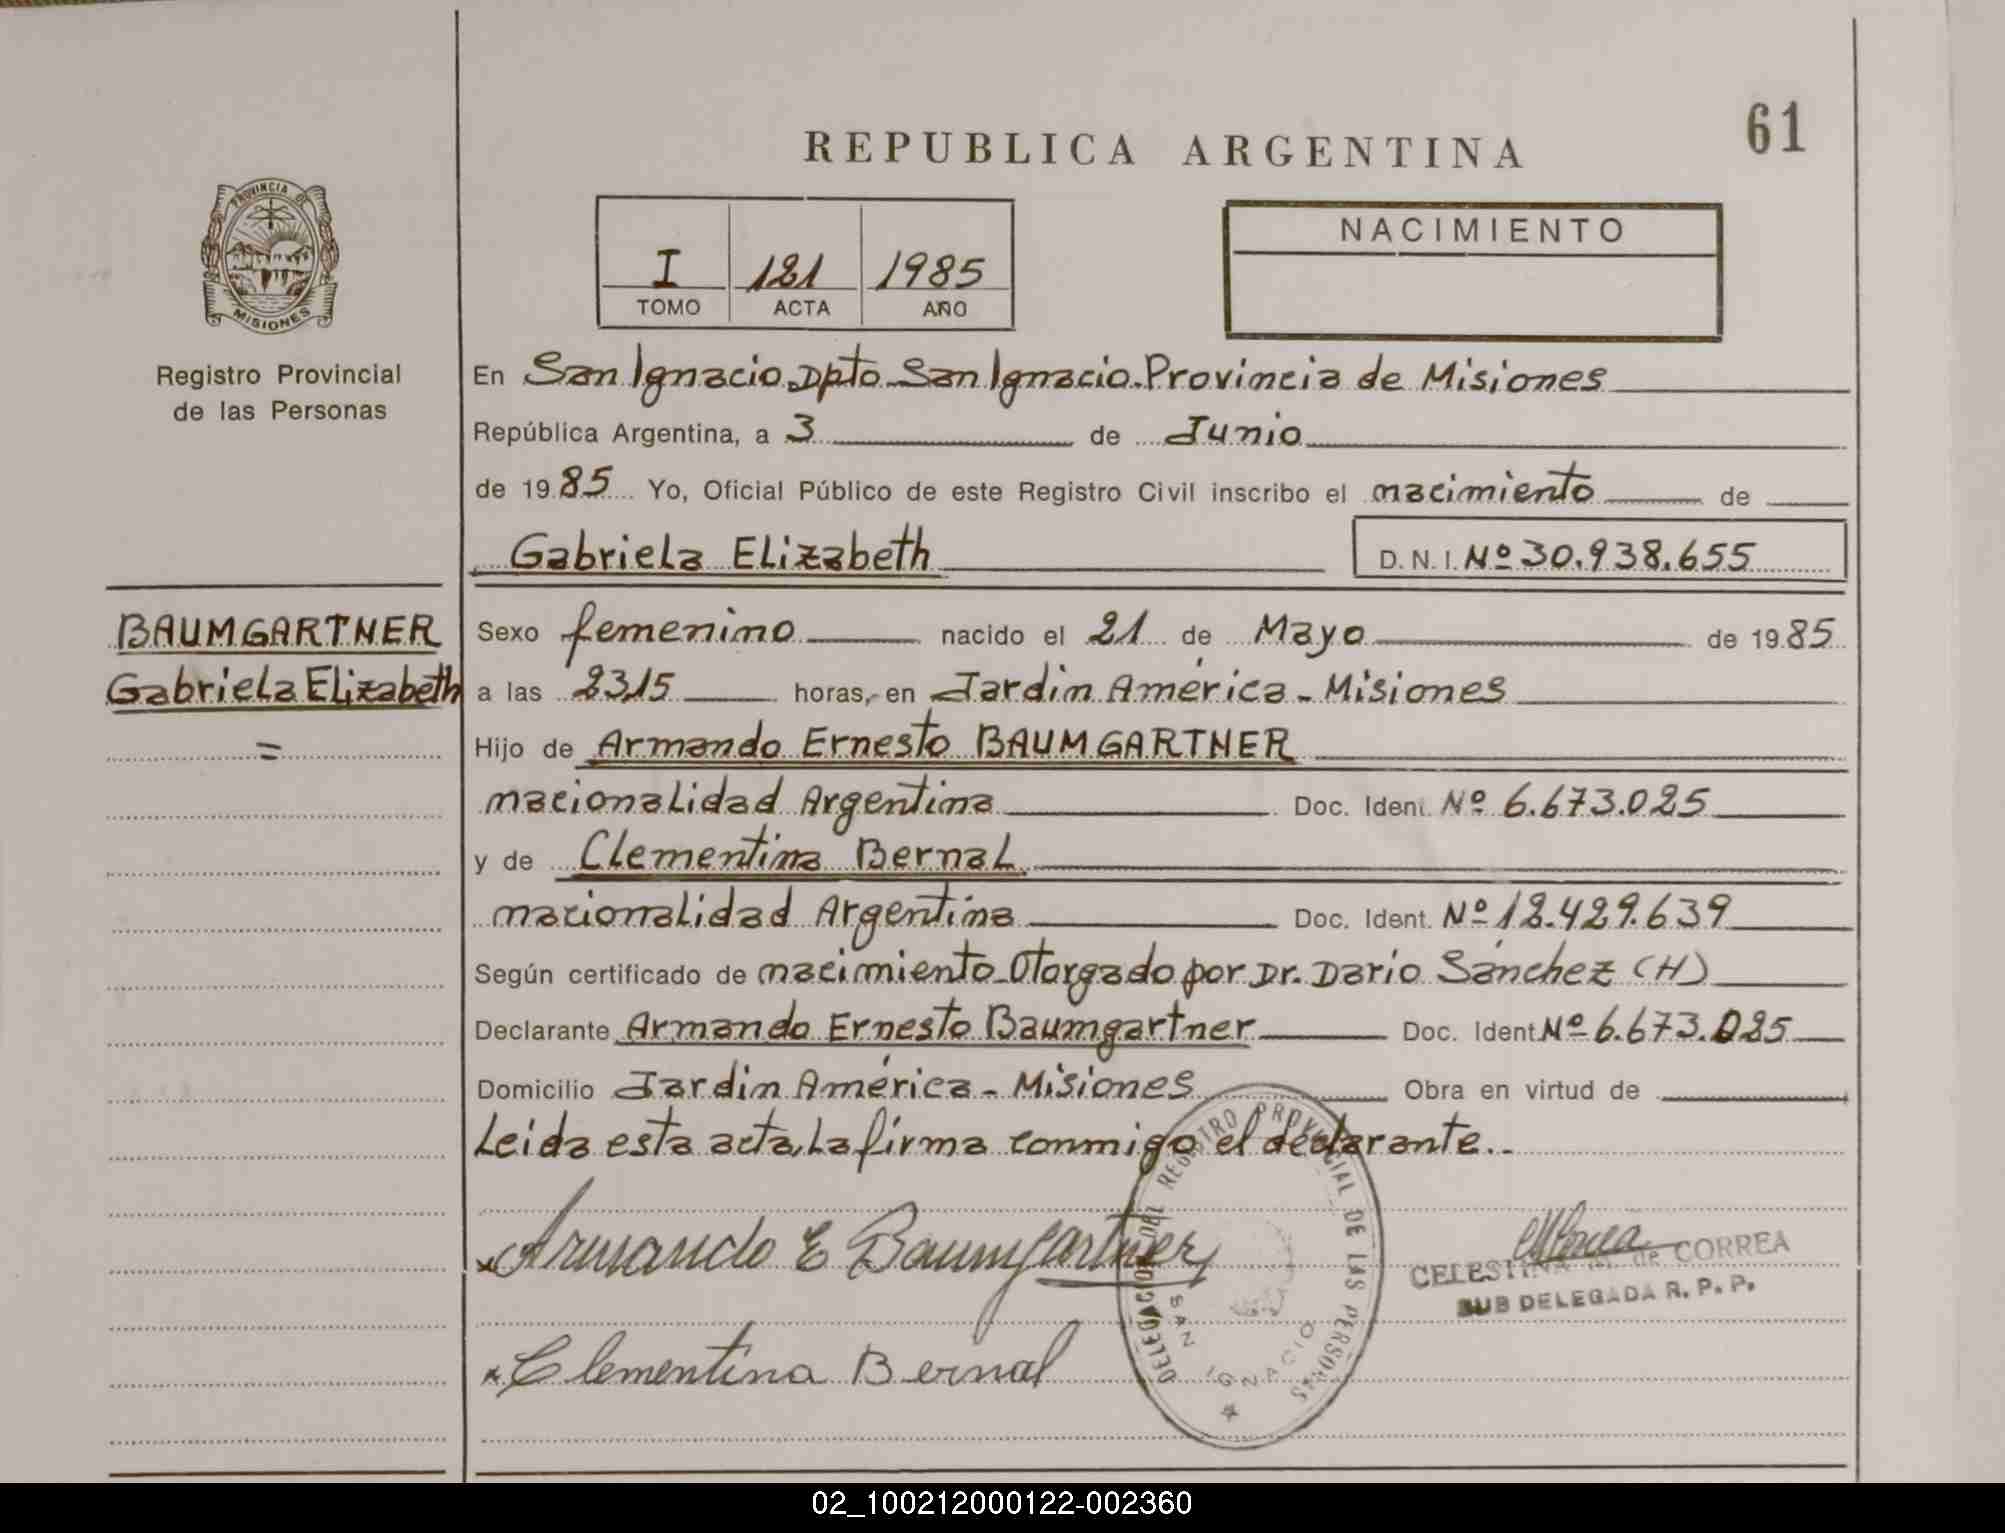 61
REPUBLICA ARGENTINA
PROVINCIA DE
MISIONES
Registro Provincial
de las Personas
I 121 1985
TOMO ACTA AÑO
NACIMIENTO
En San Ignacio Dpto San Ignacio. Provincia de Misiones
República Argentina, a 3 de Junio
de 1985 Yo, Oficial Público de este Registro Civil inscribo el nacimiento de
Gabriela Elizabeth D. N. I. Nº 30.938.655
BAUMGARTNER
Gabriela Elizabeth
=
Sexo femenino nacido el 21 de Mayo de 1985
a las 2315 horas, en Jardín América - Misiones
Hijo de Armando Ernesto BAUMGARTNER
nacionalidad Argentina Doc. Ident. Nº 6.673.025
y de Clementina Bernal
nacionalidad Argentina Doc. Ident. Nº 12.429.639
Según certificado de nacimiento Otorgado por Dr. Darío Sánchez (H)
Declarante Armando Ernesto Baumgartner Doc. Ident. Nº 6.673.025
Domicilio Jardín América - Misiones Obra en virtud de
Leida esta acta, la firma conmigo el declarante..
Armando E Baumgartner
Clementina Bernal
DELEGACION DEL REGISTRO PROVINCIAL DE LAS PERSONAS
SAN IGNACIO
CELESTINA de CORREA
SUB DELEGADA R. P. P.
02_100212000122-002360